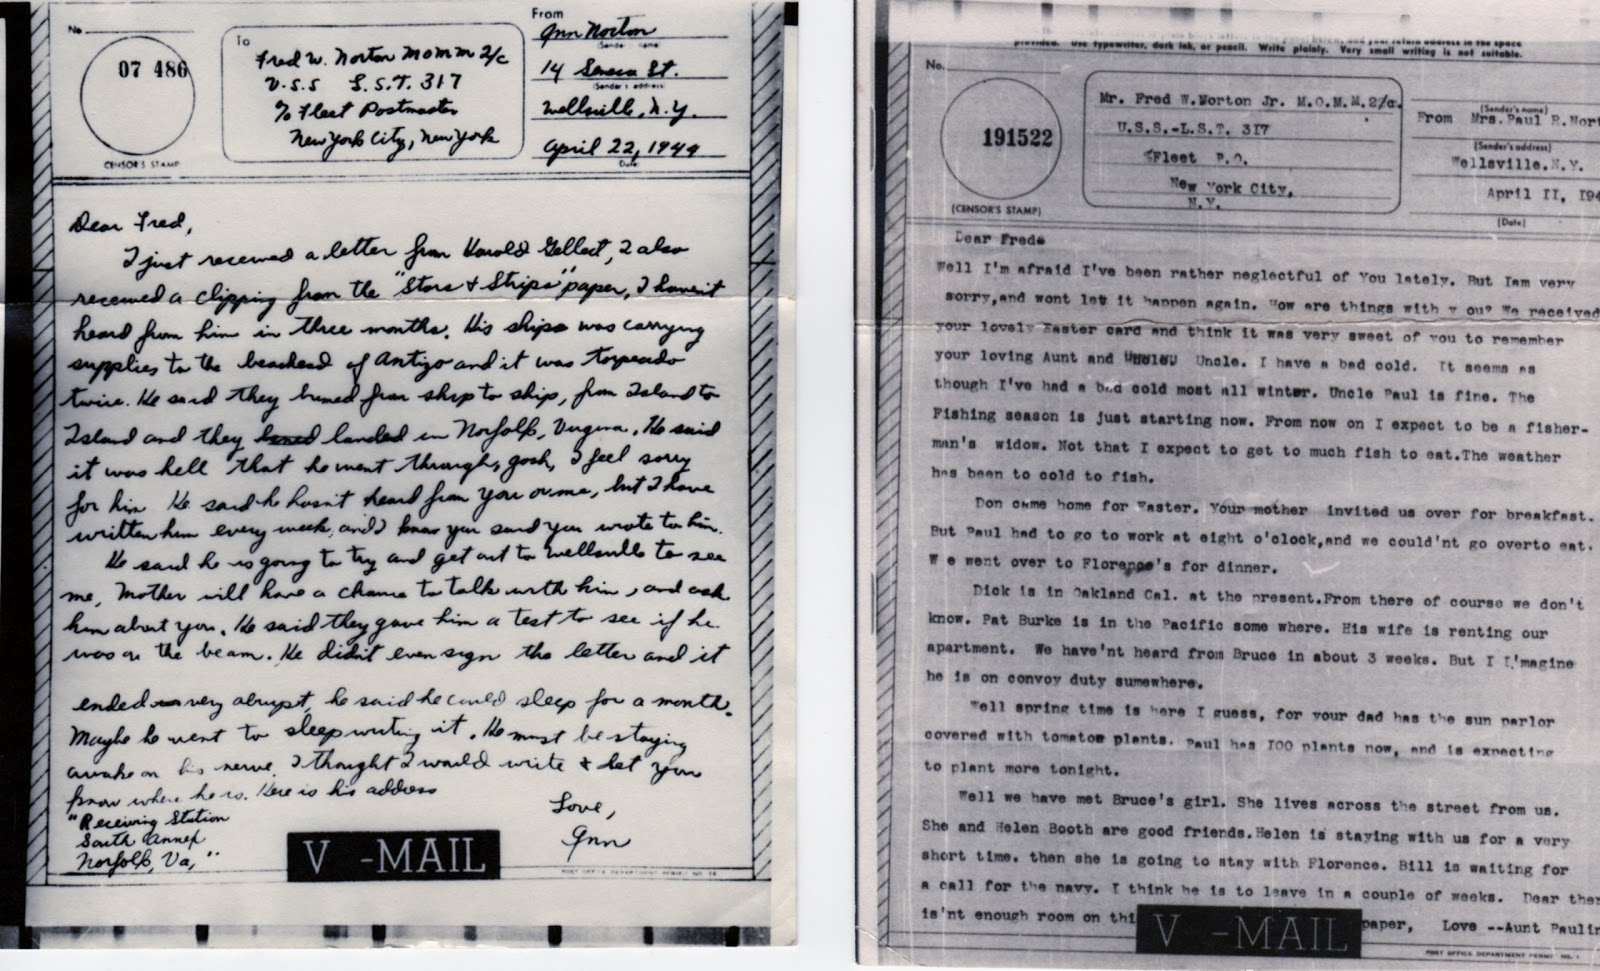 No.
07 486
CENSOR'S STAMP
To
Fred W. Norton MoMM 2/c
U.S.S L.S.T. 317
℅ Fleet Postmaster
New York City, New York
From
Ann Norton
(Sender's name)
14 Seneca St.
(Sender's address)
Wellsville, N.Y.
April 22, 1944
Date
Dear Fred,
I just received a letter from Harold Gellert, I also
received a clipping from the "Stars & Strips" paper, I haven't
heard from him in three months. His ship was carrying
supplies to the beachead of Antigo and it was torpeado
twice. He said they bumed from ship to ship, from Island to
Island and they landed in Norfolk, Virginia. He said
it was hell that he went through, gosh, I feel sorry
for him He said he hasn't heard from you or me, but I have
written him every week, and I know you said you wrote to him.
He said he is going to try and get out to Wellsville to see
me, Mother will have a chance to talk with him, and ask
him about you. He said they gave him a test to see if he
was on the beam. He didn't even sign the letter and it
ended very abrupt, he said he could sleep for a month.
Maybe he went to sleep writing it. He must be staying
awake on his nerve. I thought I would write & let you
know where he is. Here is his address
"Receiving Station
South Annex
Norfolk, Va,"
Love,
Ann
V -MAIL
POST OFFICE DEPARTMENT PERMIT NO.
provided. Use typewriter, dark ink, or pencil. Write plainly. Very small writing is not suitable.
No.
191522
(CENSOR'S STAMP)
Mr. Fred W.Norton Jr. M.O.M.M.2/c.
U.S.S.-L.S.T. 317
Fleet P.O.
New York City,
N.Y.
(Sender's name)
From Mrs.Paul R.Nort
(Sender's address)
Wellsville.N.Y.
April II, I94
(Date)
Dear Fred
Well I'm afraid I've been rather neglectful of You lately. But Iam very
sorry,and wont let it happen again. How are things with y ou? We received
your lovely Easter card and think it was very sweet of you to remember
your loving Aunt and Uncle. I have a bad cold. It seems as
though I've had a bad cold most all winter. Uncle Paul is fine. The
Fishing season is just starting now. From now on I expect to be a fisher-
man's widow. Not that I expect to get to much fish to eat.The weather
has been to cold to fish.
Don came home for Easter. Your mother invited us over for breakfast.
But Paul had to go to work at eight o'clock,and we could'nt go overto eat.
W e went over to Florence's for dinner.
Dick is in Oakland Cal. at the present.From there of course we don't
know. Pat Burke is in the Pacific some where. His wife is renting our
apartment. We have'nt heard from Bruce in about 3 weeks. But I I'magine
he is on convoy duty sumewhere.
Well spring time is here I guess, for your dad has the sun parlor
covered with tomatoe plants. Paul has I00 plants now, and is expecting
to plant more tonight.
Well we have met Bruce's girl. She lives across the street from us.
She and Helen Booth are good friends.Helen is staying with us for a very
short time. then she is going to stay with Florence. Bill is waiting for
a call for the navy. I think he is to leave in a couple of weeks. Dear ther
is'nt enough room on thi paper, Love --Aunt Paulin
V -MAIL
POST OFFICE DEPARTMENT PERMIT NO.